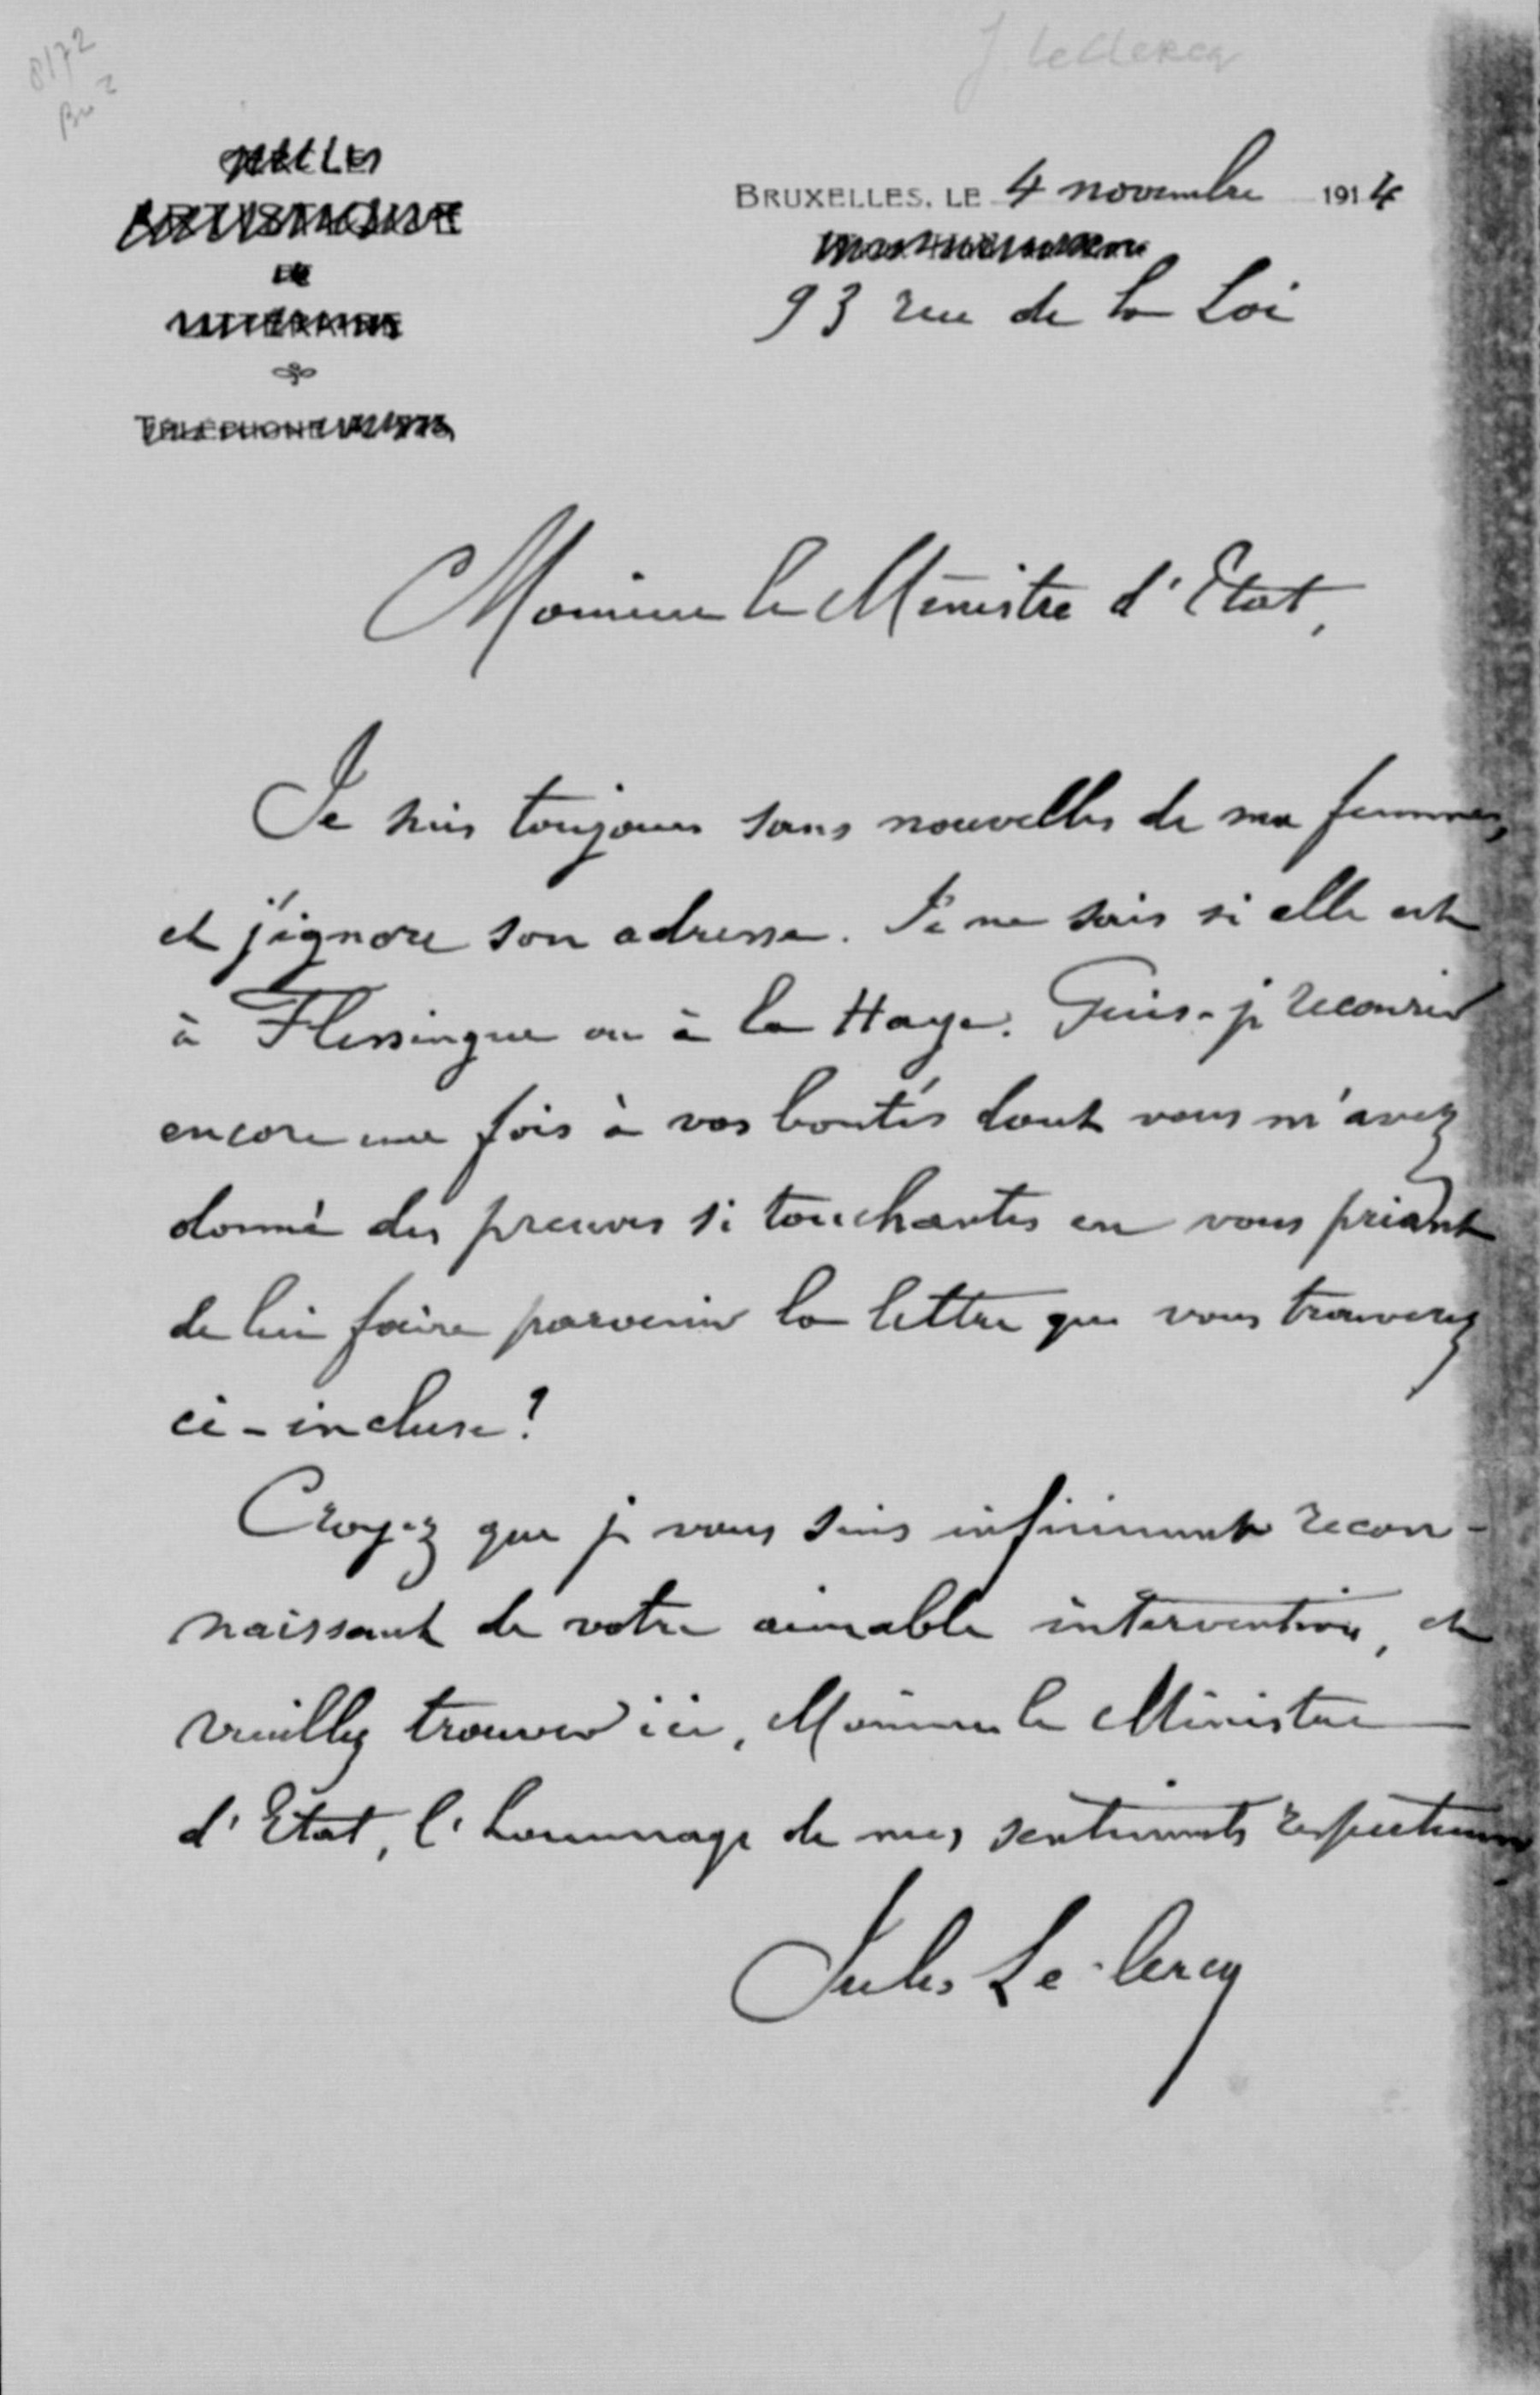 8172
J Leclercq
BRUXELLES, LE 4 novembre 1914
93 rue de la Loi
ET
TÉLÉPHONE
Monsieur le Ministre d'Etat,
Je suis toujours sans nouvelles de ma femme,
et j'ignore son adresse. Je ne sais si elle est
à Flessingue ou à la Haye. Puis-je recourir
encore une fois à vos bontés dont vous m'avez
donné des preuves si touchantes en vous priant
de lui faire parvenir la lettre que vous trouverez
ci-incluse?
Croyez que je vous suis infiniment recon-
naissant de votre aimable intervention, et
veuillez trouver ici, Monsieur le Ministre
d'Etat, l'hommage de mes sentiments respectueux
Jules Leclercq